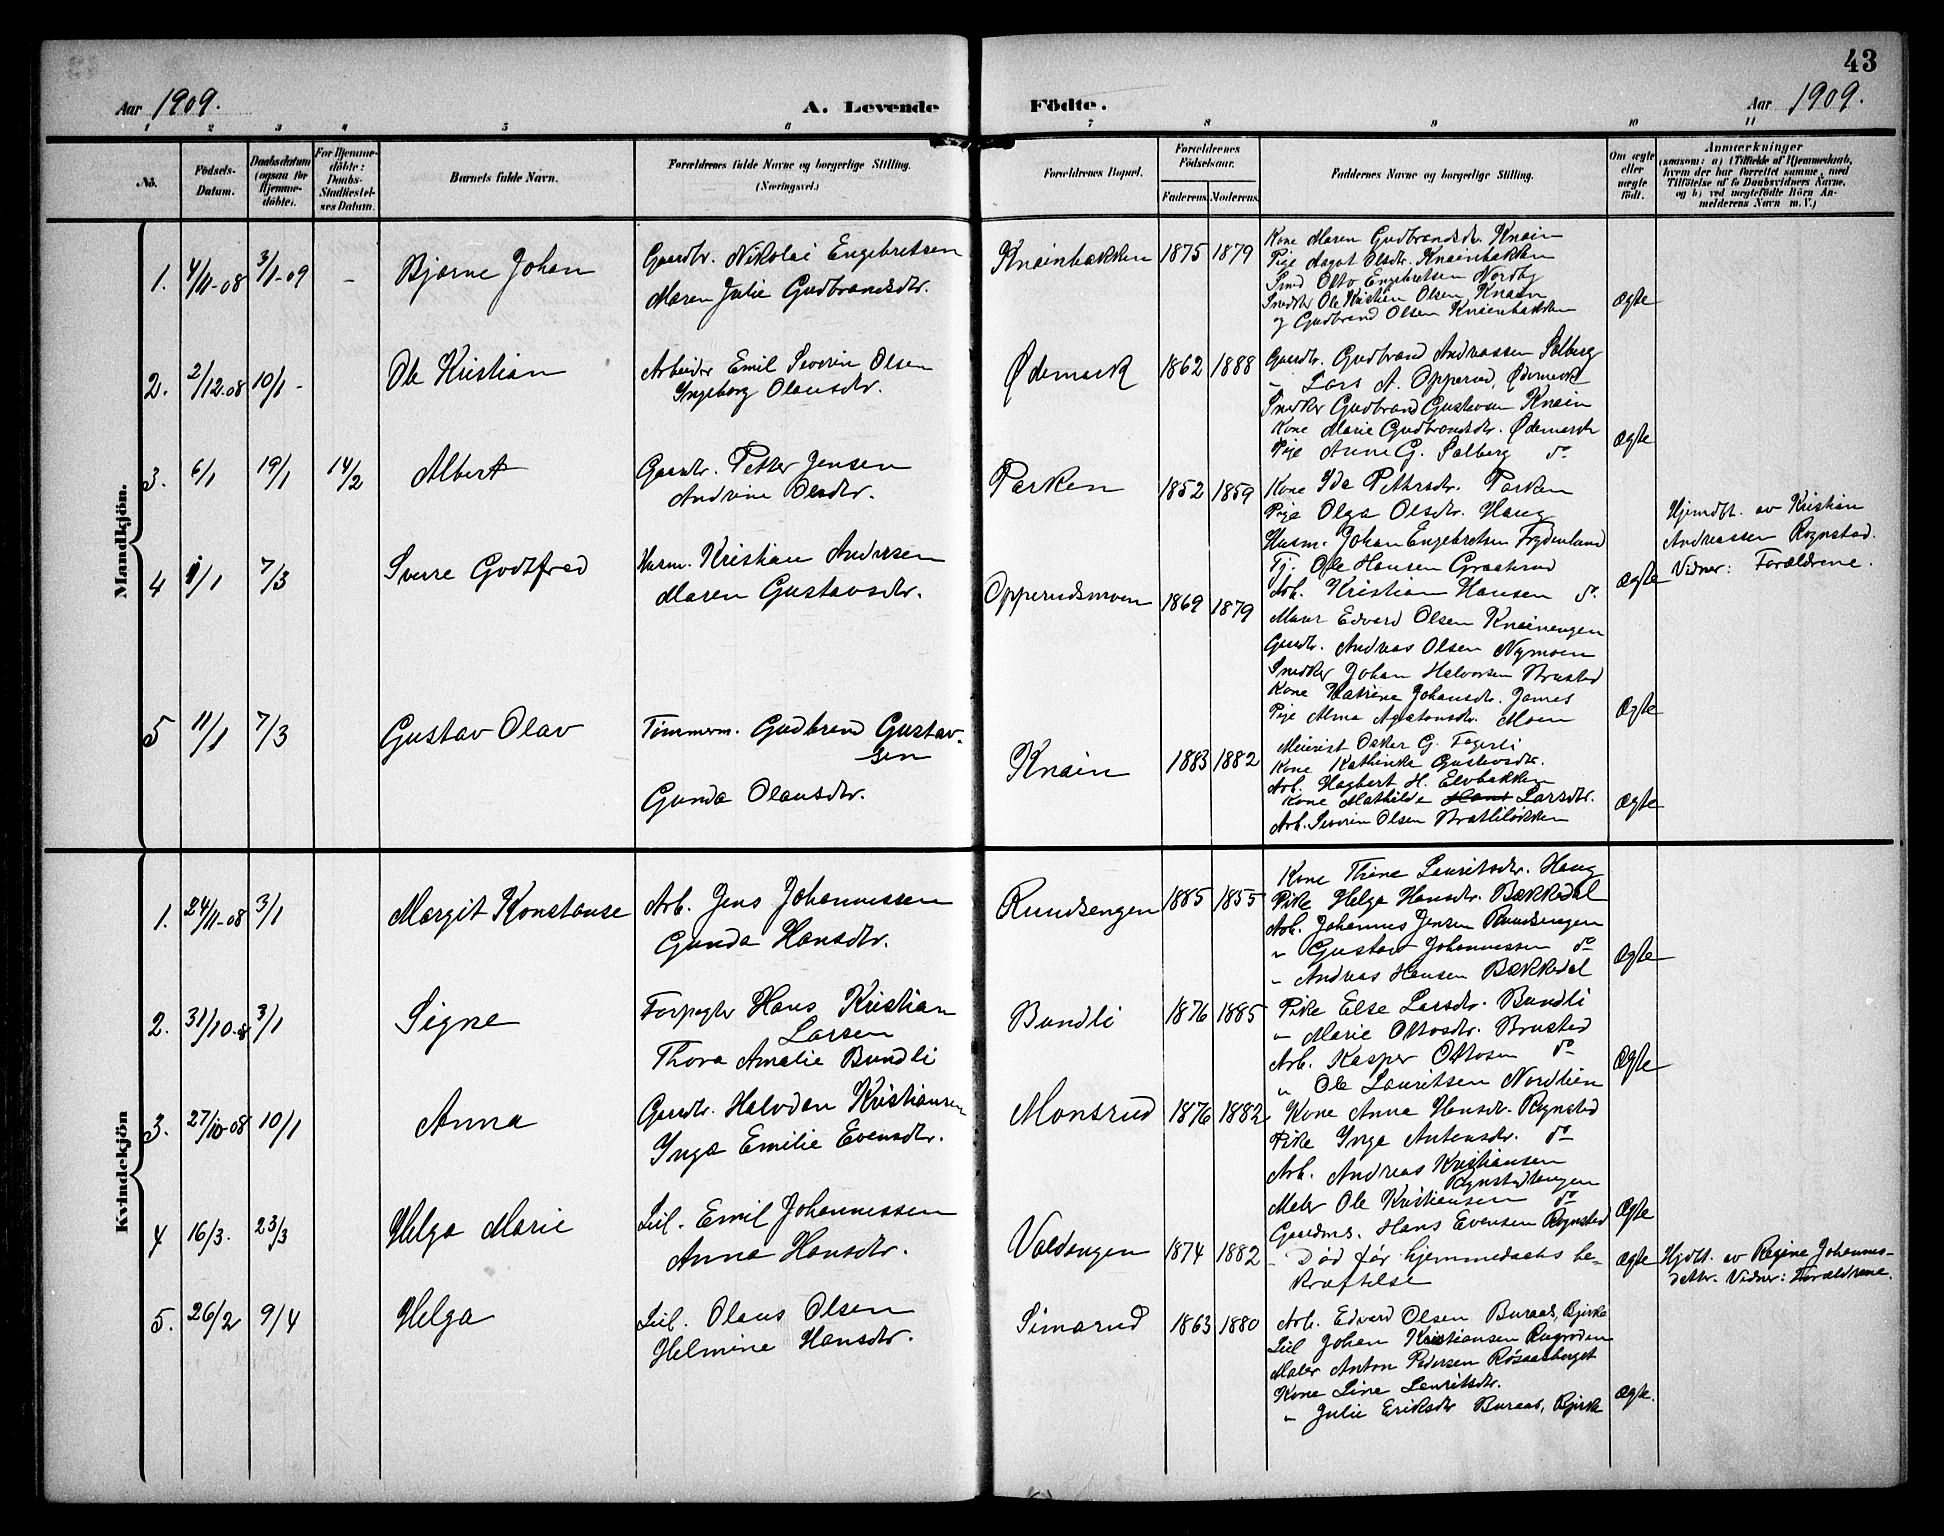 43
Aar 1909.
A. Levende
Födte.
Aar 1909.
1 2 3 4 5 6 7 8 9 10 11
No.
Födsels-
Datum.
Daabsdatum
(ogsaa for
Hjemme-
döbte).
For Hjemme-
döbte:
Daabs-
Stadfæstel-
ses Datum.
Barnets fulde Navn.
Forældrenes fulde Navne og borgerlige Stilling.
(Næringsvei.)
Forældrenes Bopæl.
Forældrenes
Födselsaar.
Faderens. Moderens.
Faddernes Navne og borgerlige Stilling.
Om ægte
eller
uægte
födt.
Anmærkninger
(saasom: a) i Tilfælde af Hjemmedaab,
hvem der har forrettet samme, med
Tilföielse af to Daabsvidners Navne,
og b) ved uægtefödte Börn An-
melderens Navn m. V.)
Mandkjön.
1. 4/11-08 3/1-09 - Bjarne Johan
Gaardbr. Nikolai Engebretsen
Maren Julie Gudbrandsdtr.
Knainbakken 1875 1879
Kone Maren Gudbrandsdtr. Knain
Pige Aagot Olsdtr. Knainbakken
Smed Otto Engebretsen Nordby
Snedker Ole Kristian Olsen Knain
og Gudbrand Olsen Knainbakken
Ægte
2. 2/12.08 10/1- Ole Kristian
Arbeider Emil Severin Olsen
Ingeborg Olausdtr.
Ødemark 1862 1888
Gaardbr. Gudbrand Andreassen Solberg
" Lars A. Opperud, Ødemark
Snedker Gudbrand Gustavsen Knain
Kone Marie Gudbrandsdtr. Ødemark
Pige Anne G. Solberg do
Ægte
3. 6/1 19/1 14/2 Albert
Gaardbr. Petter Jensen
Andrine Olsdtr.
Parken 1852 1859
Kone Ida Pettersdtr. Parken
Pige Olga Olsdtr. Haug
Husm. Johan Engebretsen Frydenlund
Tj. Ole Hansen Graaterud
Arb. Kristian Hansen do
Ægte
Hjemdbt. av Kristian
Andreassen Rognstad.
Vidner: Forældrene.
4 1/1 7/3 Sverre Godtfred
Husm. Kristian Andersen
Maren Gustavsdtr.
Opperudsmoen 1869 1879
Murer Edvard Olsen Knainengen
Gaardbr. Andreas Olsen Nymoen
Snedker Johan Halvorsen Brustad
Kone Katrine Johansdtr. James
Pige Alma Agatonsdtr. Moen
Ægte
5 11/1 7/3 Gustav Olav
Tømmerm. Gudbrand Gustav-
sen
Gunda Olausdtr.
Knain 1883 1882
Meierist Oskar G. Fagerli
Kone Kathinka Gustavsdtr.
Arb. Hagbart H. Elvbakken
Kone Mathilde Hans Larsdtr.
Arb. Severin Olsen Bratliløkken
Ægte
Kvindekjön
1. 24/11-08 3/1 Margit Konstanse
Arb. Jens Johannessen
Gunda Hansdtr.
Rundsengen 1885 1855
Kone Thina Lauritsdtr. Haug
Pike Helga Hansdtr. Bækkedal
Arb. Johannes Jensen Rundsengen
" Gustav Johannessen do
" Andreas Hansen Bækkedal
Ægte
2. 31/10.08 3/1 Signe
Forpagter Hans Kristian
Larsen
Thora Amalie Bundli
Bundli 1876 1885
Pike Else Larsdtr. Bundli
" Marie Ottosdtr. Brustad
Arb. Kasper Ottosen do
" Ole Lauritsen Nordlien
Ægte
3. 27/10-08 10/1 Anna
Gaardbr. Halvdan Kristiansen
Inga Emilie Evensdtr.
Monsrud 1876 1882
Kone Anna Hansdtr. Rognstad
Pike Inga Antonsdtr. do
Arb. Andreas Kristiansen
Rognstadlangen
Maler Ole Kristiansen do
Gaardms. Hans Evensen Rognstad
Ægte
4 16/3. 23/3 Helga Marie
Leil. Emil Johannessen
Anna Hansdtr.
Valdangen 1874 1882
- Død før hjemmedaabs be-
kræftelse
Ægte
Hjdbt. av Regine Johannes-
datter. Vidner: Forældrene.
5. 26/2 9/4 Helga
Leil. Olaus Olsen
Helmine Hansdtr.
Simarud 1863 1880
Arb. Edvard Olsen Buraas, Bjirke
Leil Johan Kristiansen Rugroden
Maler Anton Pedersen Røsaasberget
Kone Line Lauritsdtr.
" Julie Eriksdtr Buraas, Bjirke
Ægte.